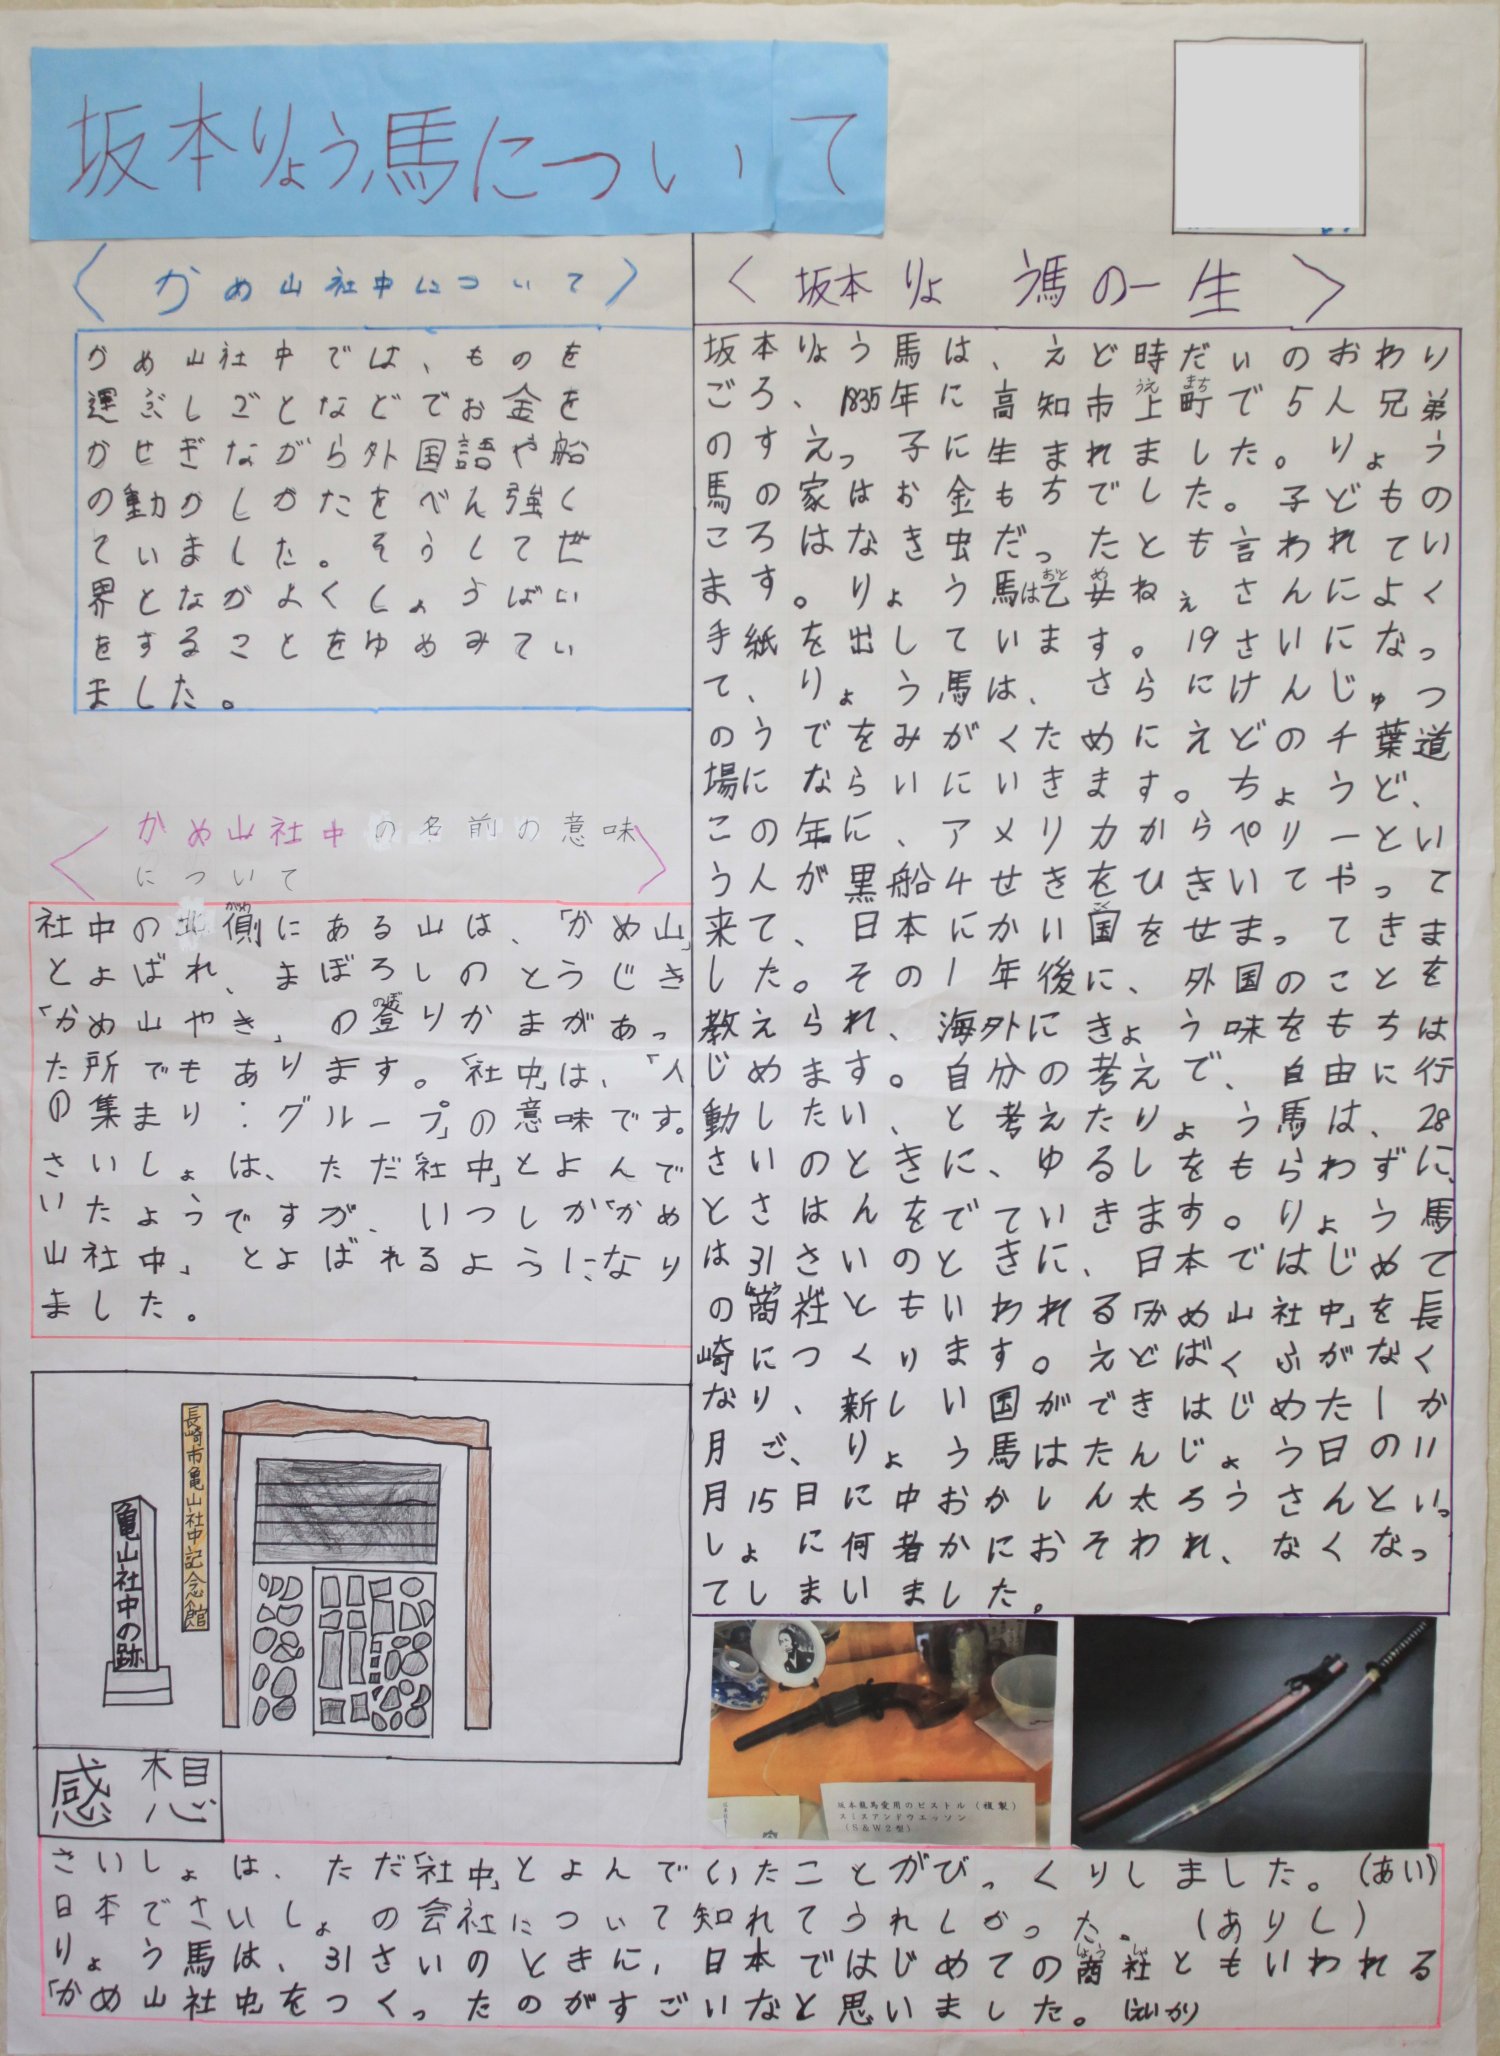 坂本りょう馬について
〈かめ山社中について〉
かめ山社中では、ものを
運ぶしごとなどでお金を
かせぎながら外国語や船
の動かしかたをべん強く
ていました。そうして世
界となかよくしょうばい
をすることをゆめみてい
ました。
〈かめ山社中の名前の意味
について〉
社中の北側にある山は、「かめ山」
とよばれ、まぼろしのとうじき
「かめ山やき」の登りかまがあっ
た所でもあります。「社中」は、「人
の集まり:グループ」の意味です。
さいしょは、ただ「社中」とよんで
いたようですが、いつしか「かめ
山社中」とよばれるようになり
ました。
長崎市亀山社中記念館
亀山社中の跡
〈坂本りょう馬の一生〉
坂本りょう馬は、えど時だいのおわり
ごろ、1835年に高知市上町で5人兄弟
のすえっ子に生まれました。りょう
馬の家はお金もちでした。子どもの
ころはなき虫だったとも言われてい
ます。りょう馬は乙女ねぇさんによく
手紙を出しています。19さいになっ
て、りょう馬は、さらにけんじゅつ
のうでをみがくためにえどの千葉道
場にならいにいきます。ちょうど、
この年に、アメリカからペリーとい
う人が黒船4せきをひきいてやって
来て、日本にかい国をせまってきま
した。その1年後に、外国のことを
教えられ、海外にきょう味をもちは
じめます。自分の考えで、自由に行
動したい、と考えたりょう馬は、28
さいのときに、ゆるしをもらわずに、
とさはんをでていきます。りょう馬
は31さいのときに、日本ではじめて
の商社ともいわれる「かめ山社中」を長
崎につくります。えどばくふがなく
なり、新しい国ができはじめた1か
月ご、りょう馬はたんじょう日の11
月15日に中おかしん太ろうさんといっ
しょに何者かにおそわれ、なくなっ
てしまいました。
坂本龍馬愛用のピストル(複製)
スミスアンドウエッソン
(S&W2型)
感想
さいしょは、ただ「社中」とよんでいたことがびっくりしました。(あい)
日本でさいしょの会社について知れてうれしかった。(ありし)
りょう馬は、31さいのときに、日本ではじめての商社ともいわれる
「かめ山社中をつくったのがすごいなと思いました。(えいかり)